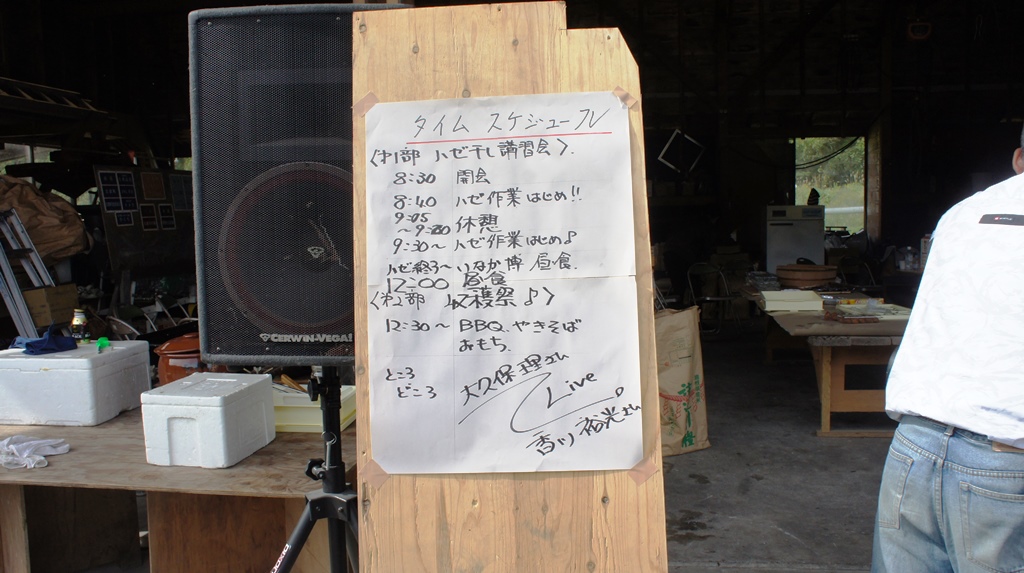 タイム スケジュール
<第1部 ハゼ干し講習会>.
8:30 開会
8:40 ハゼ作業はじめ!!
9:05
～9:30 休憩
9:30～ ハゼ作業はじめ♪
ハゼ終了～いなか博 昼食.
12:00 昼食
<第2部 収穫祭♪>
12:30～ BBQ. やきそば
おもち.
ところ
どころ
大久保理さん
Live
香川 裕光さん
CERWIN-VEGA!